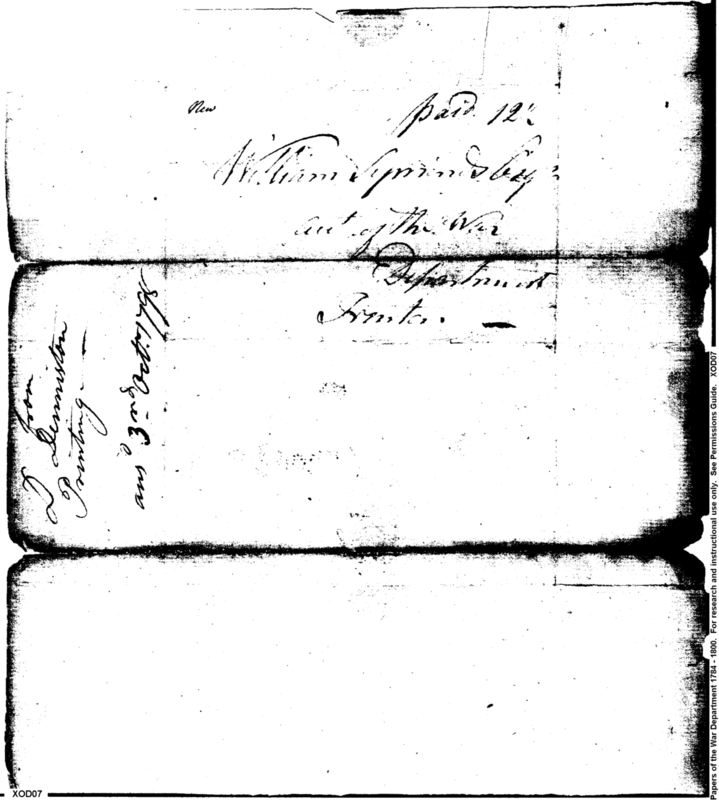 New
paid 12½
William Symonds Esqr
act of the War
Department
Trenton.
From
D Denniston
Printing
ansd 3rd Octr 1798
XOD07
Papers of the War Department 1784 - 1800. For research and instructional use only. See Permissions Guide. XOD07